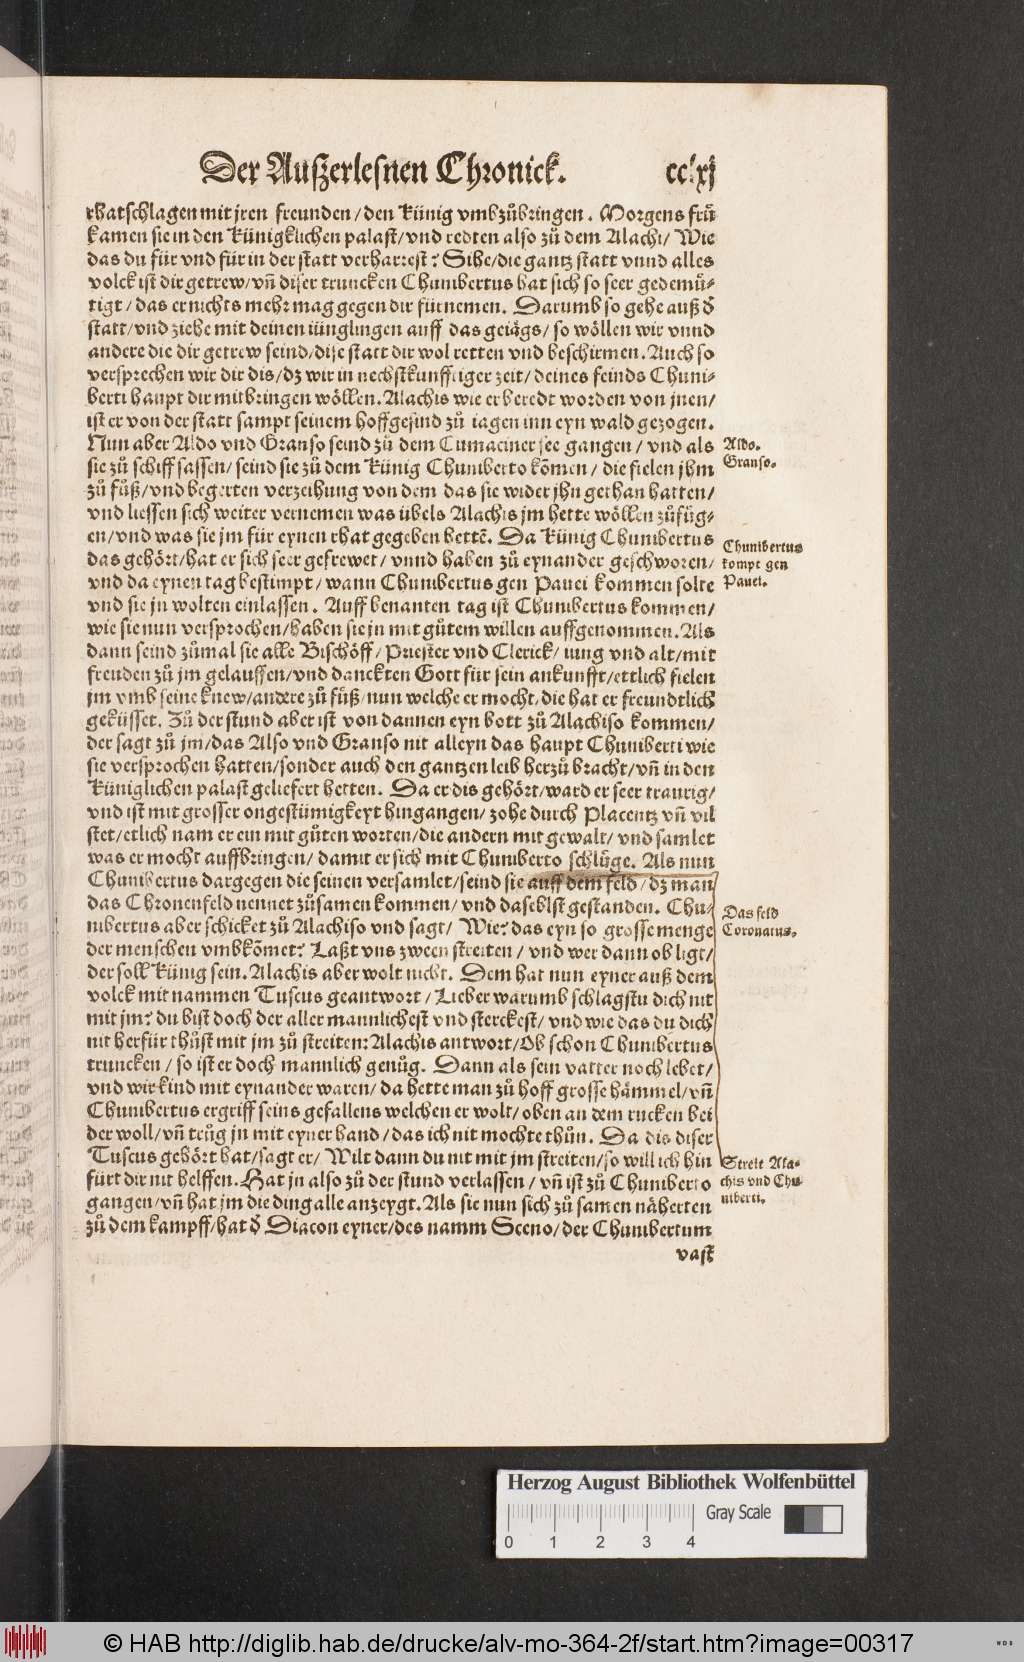 Der Außerlesnen Chronick. cclxj
rhatschlagen mit jren freunden / den Künig vmbzůbringen. Morgens frü
kamen sie in den Künigklichen palast / vnd redten also zů dem Alachi / Wie
das du für vnd für in der statt verharrest? Sihe / die gantz statt vnnd alles
volck ist dir getrew / vñ diser truncken Chunibertus hat sich so seer gedemü-
tigt / das er nichts mehr mag gegen dir fürnemen. Darumb so gehe auß d̕
statt / vnd ziehe mit deinen jünglingen auff das geiägs / so wöllen wir vnnd
andere die dir getrew seind / dise statt dir wol retten vnd beschirmen. Auch so
versprechen wir dir dis / dz wir in nechstkunfftiger zeit / deines feinds Chuni-
berti haupt dir mitbringen wöllen. Alachis wie er beredt worden von jnen /
ist er von der statt sampt seinem hoffgesind zů iagen inn eyn wald gezogen.
Nun aber Aldo vnd Granso seind zů dem Cumaciner see gangen / vnd als
Aldo.
Granso.
sie zů schiff sassen / seind sie zů dem Künig Chuniberto kõmen / die fielen jhm
zů fůß / vnd begerten verzeihung von dem das sie wider jhn gethan hatten /
vnd liessen sich weiter vernemen was übels Alachis jm hette wöllen zůfüg-
en / vnd was sie jm für eynen rhat gegeben hettẽ. Da Künig Chunibertus
Chunibertus
kompt gen
Pauei.
das gehört / hat er sich seer gefrewet / vnnd haben zů eynander geschworen /
vnd da eynen tag bestimpt / wann Chunibertus gen Pauei kommen solte
vnd sie jn wolten einlassen. Auff benanten tag ist Chunibertus kommen /
wie sie nun versprochen / haben sie jn mit gůtem willen auffgenommen. Als
dann seind zůmal sie alle Bischöff / Priester vnd Clerick / iung vnd alt / mit
freuden zů jm gelauffen / vnd danckten Gott für sein ankunfft / ettlich fielen
jm vmb seine knew / andere zů fůß / nun welche er mocht / die hat er freundtlich
geküsset. Zů der stund aber ist von dannen eyn bott zů Alachiso kommen /
der sagt zů jm / das Also vnd Granso nit alleyn das haupt Chuniberti wie
sie versprochen hatten / sonder auch den gantzen leib herzů bracht / vñ in den
Küniglichen palast geliefert hetten. Da er dis gehört / ward er seer traurig /
vnd ist mit grosser ongestümigkeyt hingangen / zohe durch Placentz vñ vil
stet / etlich nam er ein mit gůten worten / die andern mit gewalt / vnd samlet
was er mocht auffbringen / damit er sich mit Chuniberto schlüge. Als nun
Chunibertus dargegen die seinen versamlet / seind sie auff dem feld / dz man
das Chronenfeld nennet zůsamen kommen / vnd daseblst gestanden. Chu-
Das feld
Coronatus.
nibertus aber schicket zů Alachiso vnd sagt / Wie? das eyn so grosse menge
der menschen vmbkõmet? Laßt vns zween streiten / vnd wer dann obligt /
der soll Künig sein. Alachis aber wolt nicht. Dem hat nun eyner auß dem
volck mit nammen Tuscus geantwort / Lieber warumb schlagstu dich nit
mit jm? du bist doch der aller mannlichest vnd sterckest / vnd wie das du dich
nit herfür thůst mit jm zů streiten: Alachis antwort / Ob schon Chunibertus
truncken / so ist er doch mannlich genůg. Dann als sein vatter noch lebet /
vnd wir kind mit eynander waren / da hette man zů hoff grosse hämmel / vñ
Chunibertus ergriff seins gefallens welchen er wolt / oben an dem rucken bei
der woll / vñ trůg jn mit eyner hand / das ich nit mochte thůn. Da dis diser
Tuscus gehört hat / sagt er / Wilt dann du nit mit jm streiten / so will ich hin
Streit Ala-
chis vnd Chu
niberti.
fürt dir nit helffen. Hat jn also zů der stund verlassen / vñ ist zů Chuniberto
gangen / vñ hat jm die ding alle anzeygt. Als sie nun sich zů samen näherten
zů dem kampff / hat d̕ Diacon eyner / des namm Sceno / der Chunibertum
vast
Herzog August Bibliothek Wolfenbüttel
Gray Scale
0 1 2 3 4
© HAB http://diglib.hab.de/drucke/alv-mo-364-2f/start.htm?image=00317